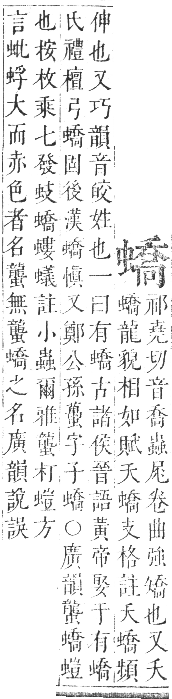 蟜
祁堯切音喬蟲尾卷曲強嬌也又夭
蟜龍貌相如賦夭蟜支格註夭蟜頻
伸也又巧韻音皎姓也一曰有蟜古諸侯晉語黃帝娶于有蟜
氏禮檀弓蟜固後漢蟜愼又鄭公孫蠆字子蟜○廣韻螚蟜螘
也按枚乘七發蚑蟜螻蟻註小蟲爾雅螚朾螘方
言蚍蜉大而赤色者名螚無螚蟜之名廣韻說誤